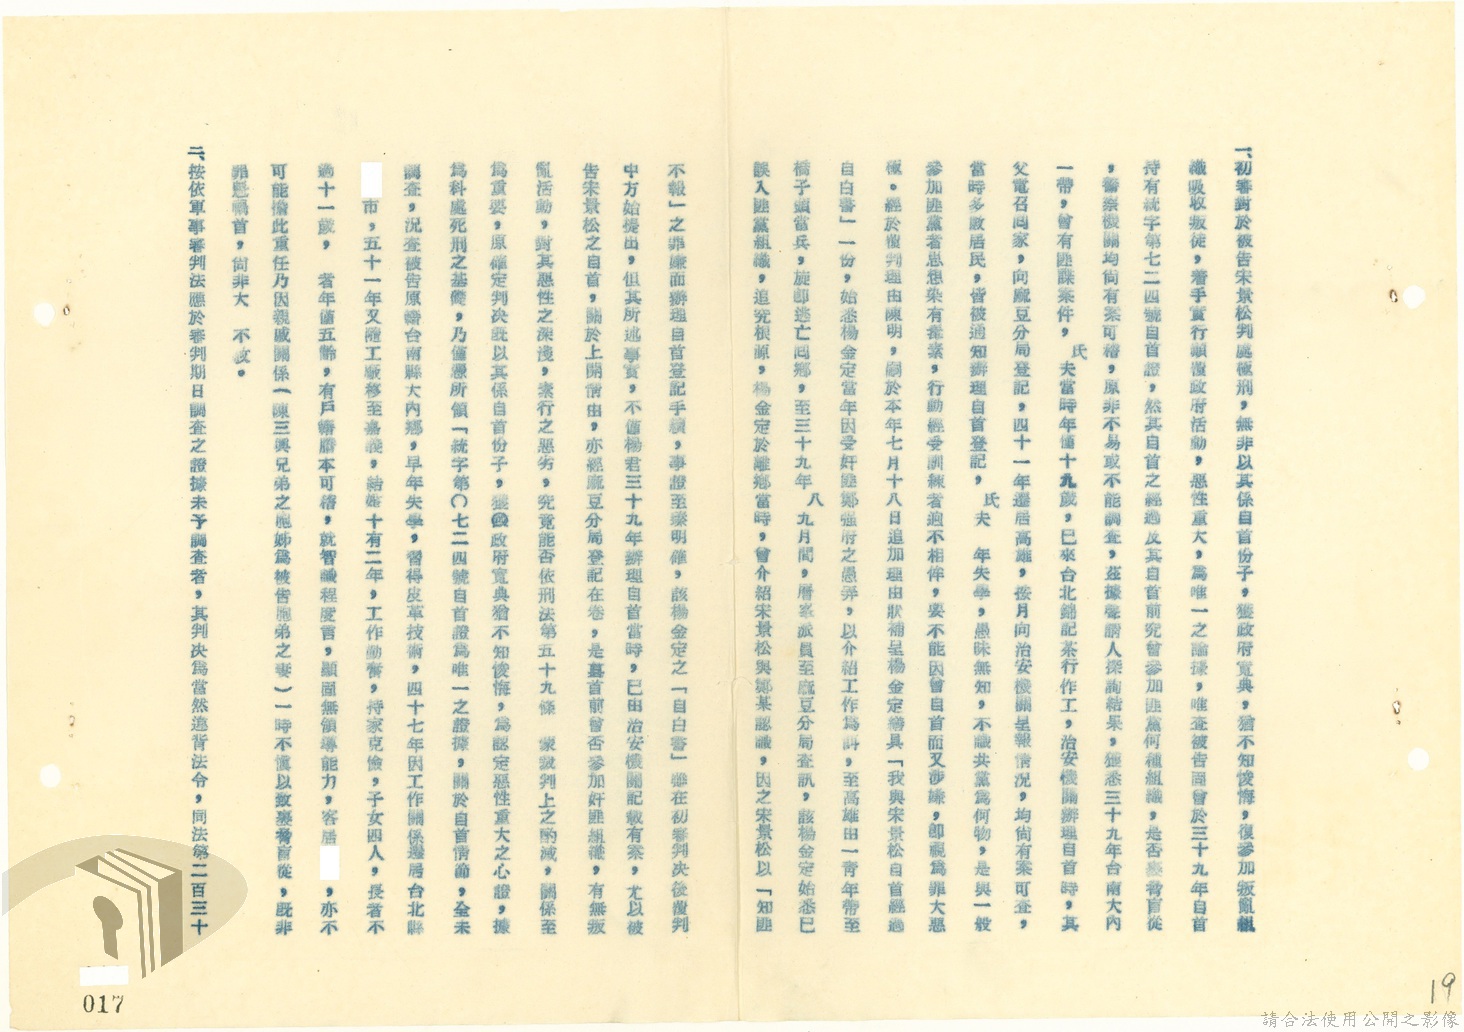 一、初審對於被告宋景松判處極刑，無非以其係自首份子，獲政府寬典，猶不知悛悔，復參加叛亂組
織吸收叛徒，著手實行顛覆政府活動，惡性重大，為唯一之論據，唯查被告固曾於三十九年自首
持有統字第七二四號自首證，然其自首之經過及其自首前究曾參加匪黨何種組織，是否脅從盲從
，警察機關均尚有案可稽，原非不易或不能調查，茲據聲請人探詢結果，獲悉三十九年台南大內
一帶，曾有匪諜案件，氏夫當時年僅十九歲，已來台北錦記茶行作工，治安機關辦理自首時，其
父電召回家，向麻豆分局登記，四十一年遷居高雄，按月向治安機關呈報情況，均尚有案可查，
當時多數居民，皆被通知辦理自首登記，氏夫 年失學，愚昧無知，不識共黨為何物，是與一般
參加匪黨者思想染有毒素，行動經受訓練者迥不相侔，要不能因曾自首而又涉嫌，即視為罪大惡
極。經於覆判理由陳明，嗣於本年七月十八日追加理由狀補呈楊金定繕具「我與宋景松自首經過
自白書」一份，始悉楊金定當年因受奸匪鄭強府之愚弄，以介紹工作為餌，至高雄由一青年帶至
橋子頭當兵，旋即逃亡回鄉，至三十九年八九月間，層峯派員至麻豆分局查訊，該楊金定始悉已
誤入匪黨組織，追究根源，楊金定於離鄉當時，曾介紹宋景松與鄭某認識，因之宋景松以「知匪
不報」之罪嫌而辦理自首登記手續，事證至臻明確，該楊金定之「自白書」雖在初審判決後覆判
中方始提出，但其所述事實，不僅楊君三十九年辦理自首當時，已由治安機關記載有案，尤以被
告宋景松之自首，關於上開情由，亦經麻豆分局登記在卷，是其首前曾否參加奸匪組織，有無叛
亂活動，對其惡性之深淺，素行之惡劣，究竟能否依刑法第五十九條 蒙裁判上之酌減，關係至
為重要，原確定判決既以其係自首份子，獲政府寬典猶不知悛悔，為認定惡性重大之心證，據
為科處死刑之基礎，乃僅憑所領「統字第〇七二四號自首證為唯一之證據，關於自首情節，全未
調查，況查被告原籍台南縣大內鄉，早年失學，習得皮革技術，四十七年因工作關係遷居台北縣
市，五十一年又隨工廠移至嘉義，結婚十有二年，工作勤奮，持家克儉，子女四人，長者不
過十一歲， 者年僅五齡，有戶籍謄本可稽，就智識程度言，顯固無領導能力，客居 ，亦不
可能擔此重任乃因親戚關係（陳三興兄弟之胞姊為被告胞弟之妻）一時不慎以致裹脅盲從，既非
罪惡禍首，尚非大 不赦。
二、按依軍事審判法應於審判期日調查之證據未予調查者，其判決為當然違背法令，同法第二百三十
017
19
請合法使用公開之影像